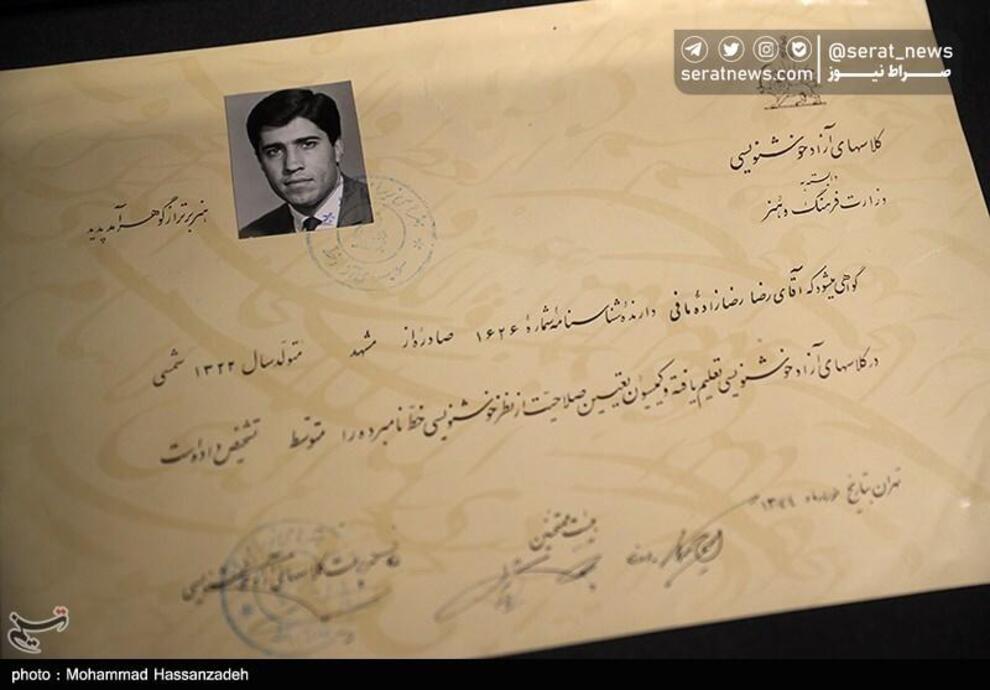 @serat_news
seratnews.com
صراط نیوز
کلاسهای آزاد خوشنویسی
وابسته به
وزارت فرهنگ و هنر
هنر برتر از گوهر آمد پدید
گواهی میشود که آقای رضا رضازاده مافی دارنده شناسنامه شماره ۱۶۲۶ صادره از مشهد متولد سال ۱۳۲۲ شمسی
در کلاسهای آزاد خوشنویسی تعلیم یافته و کمیسیون تعیین صلاحیت از نظر خوشنویسی خط نامبرده را متوسط تشخیص داده است
تهران بتاریخ
هیئت ممتحنین
تسنیم
photo : Mohammad Hassanzadeh